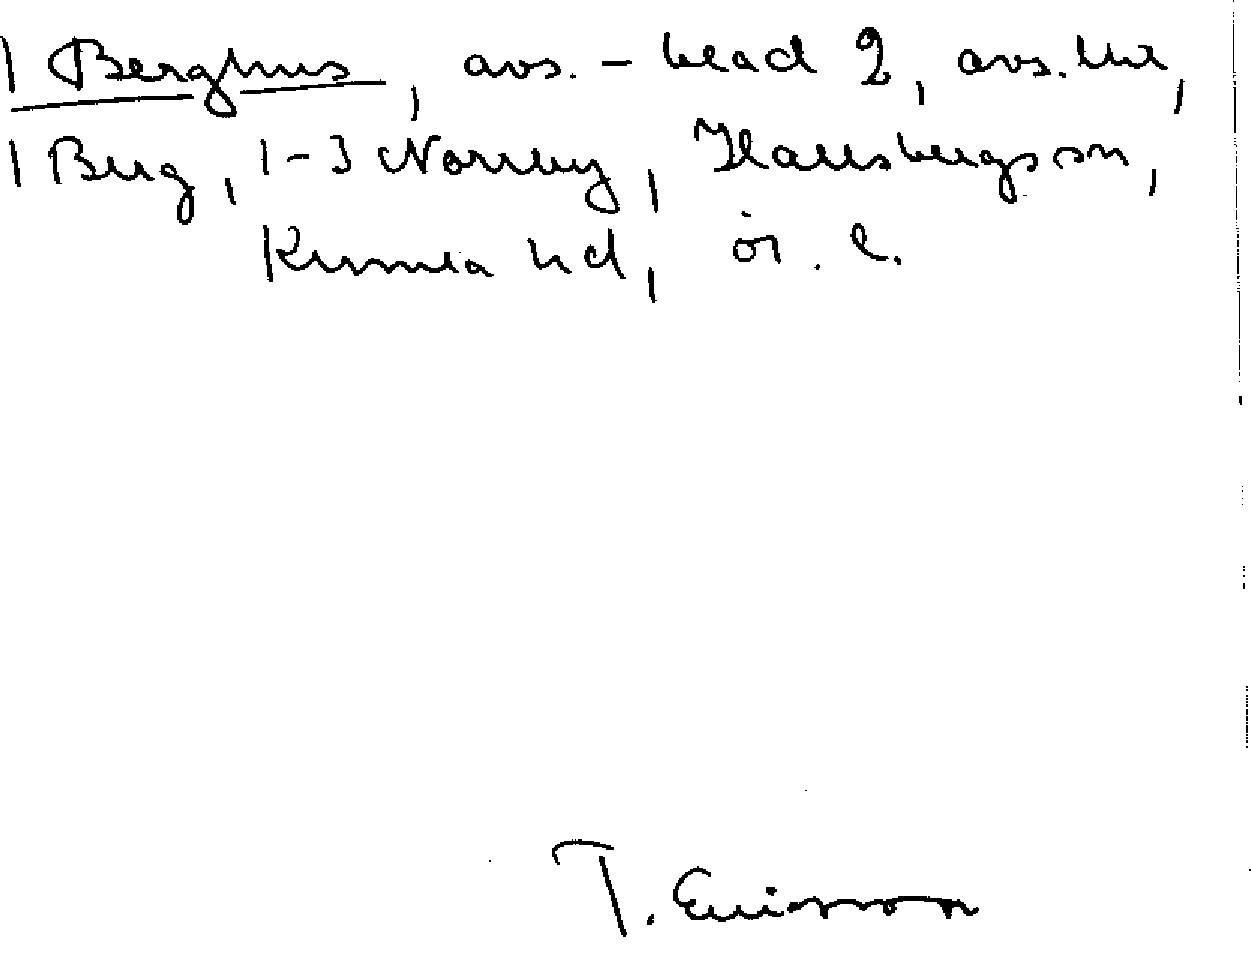 1 Berghus, avs. - blad 2, avs. lhr,
1 Berg, 1-3 Norrby, Hallsbergs sn,
Kumla hd, ör. l.
T. Ericsson